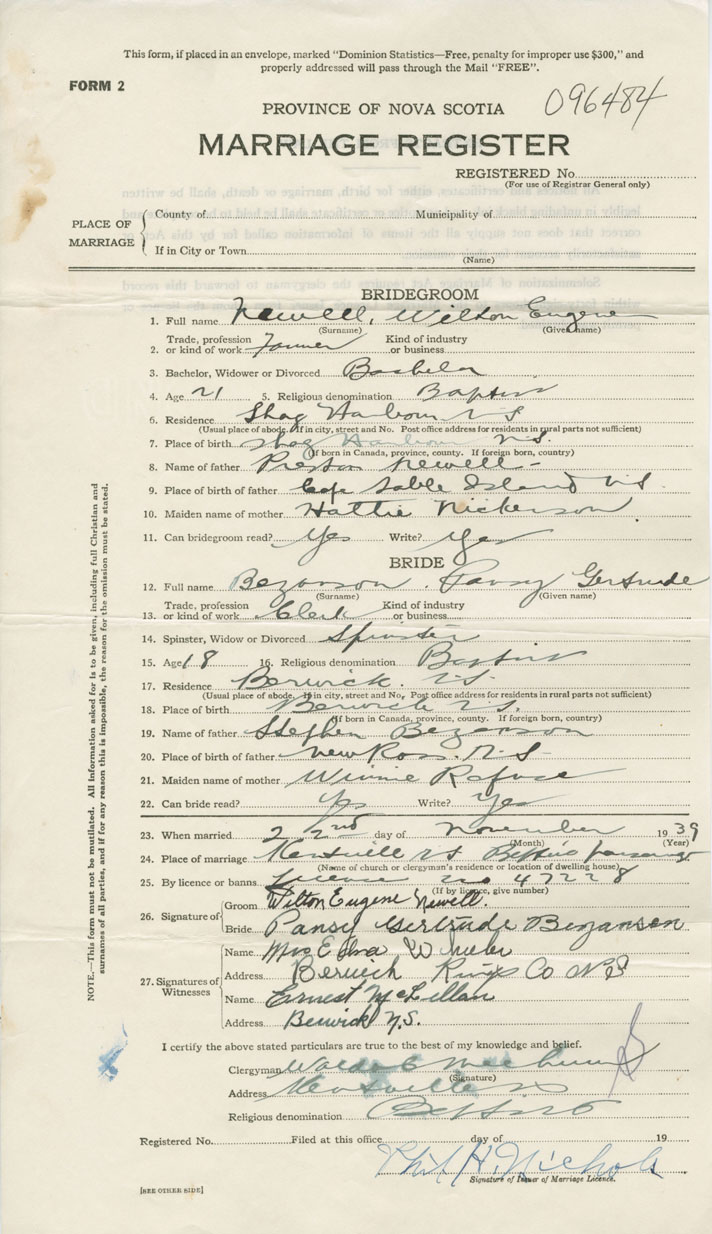 This form, if placed in an envelope, marked "Dominion Statistics—Free, penalty for improper use $300," and
properly addressed will pass through the Mail "FREE".
FORM 2
PROVINCE OF NOVA SCOTIA 096484
MARRIAGE REGISTER
REGISTERED No.
(For use of Registrar General only)
PLACE OF MARRIAGE
County of Municipality of
If in City or Town
(Name)
BRIDEGROOM
1. Full name Newell, Wilton Eugene
(Surname) (Given name)
2. Trade, profession or kind of work Farmer Kind of industry or business
3. Bachelor, Widower or Divorced Bachelor
4. Age 21 5. Religious denomination Baptist
6. Residence Shag Harbour N S
(Usual place of abode. If in city, street and No. Post office address for residents in rural parts not sufficient)
7. Place of birth Shag Harbour N.S.
(If born in Canada, province, county. If foreign born, country)
8. Name of father Preston Newell
9. Place of birth of father Cape Sable Island N.S.
10. Maiden name of mother Hattie Nickerson
11. Can bridegroom read? Yes Write? Yes
BRIDE
12. Full name Bezanson, Pansy Gertrude
(Surname) (Given name)
13. Trade, profession or kind of work Clerk Kind of industry or business
14. Spinster, Widow or Divorced Spinster
15. Age 18 16. Religious denomination Baptist
17. Residence Berwick. N.S.
(Usual place of abode. If in city, street and No. Post office address for residents in rural parts not sufficient)
18. Place of birth Berwick N.S.
(If born in Canada, province, county. If foreign born, country)
19. Name of father Stephen Bezanson
20. Place of birth of father New Ross. N.S.
21. Maiden name of mother Winnie Rafuse
22. Can bride read? Yes Write? Yes
23. When married 22nd day of November 1939
(Month) (Year)
24. Place of marriage Kentville N S Baptist parsonage
(Name of church or clergyman's residence or location of dwelling house)
25. By licence or banns Licence no 47228
(If by licence, give number)
26. Signature of
Groom Wilton Eugene Newell.
Bride Pansy Gertrude Bezanson
27. Signatures of Witnesses
Name Mrs Edna
Address Berwick Kings Co N S
Name Ernest McLellan
Address Berwick N.S.
I certify the above stated particulars are true to the best of my knowledge and belief.
Clergyman
(Signature)
Address Kentville N S
Religious denomination Baptist
Registered No. Filed at this office day of 19
Phil H. Nichols
Signature of Issuer of Marriage Licence.
[SEE OTHER SIDE]
NOTE.—This form must not be mutilated. All information asked for is to be given, including full Christian and
surnames of all parties, and if for any reason this is impossible, the reason for the omission must be stated.